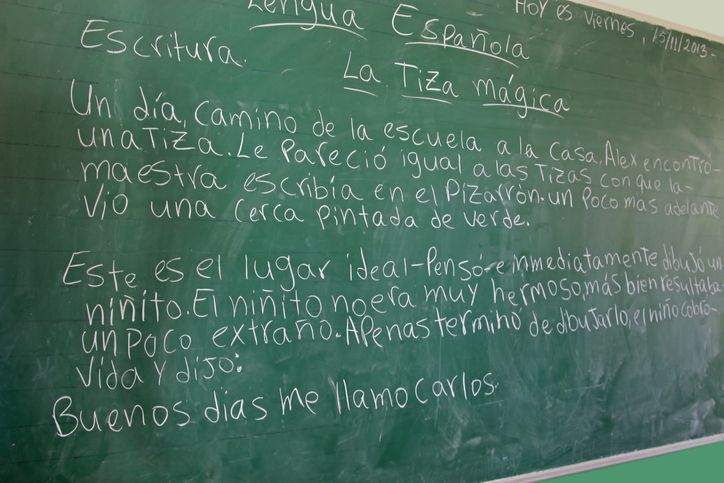 Lengua Española
Hoy es viernes, 15/11/2013.-
Escritura.
La Tiza mágica
Un día, camino de la escuela a la casa, Alex encontró-
una Tiza. Le Pareció igual a las Tizas con que la-
maestra escribía en el Pizarrón. un Poco mas adelante
Vio una Cerca Pintada de verde.
Este es el lugar ideal-Pensó-e inmediatamente dibujó un
niñito. El niñito no era muy hermoso, más bien resultaba-
un Poco extraño. Apenas terminó de dibujarlo, el niño cobró-
vida y dijo:
Buenos dias me llamo Carlos.